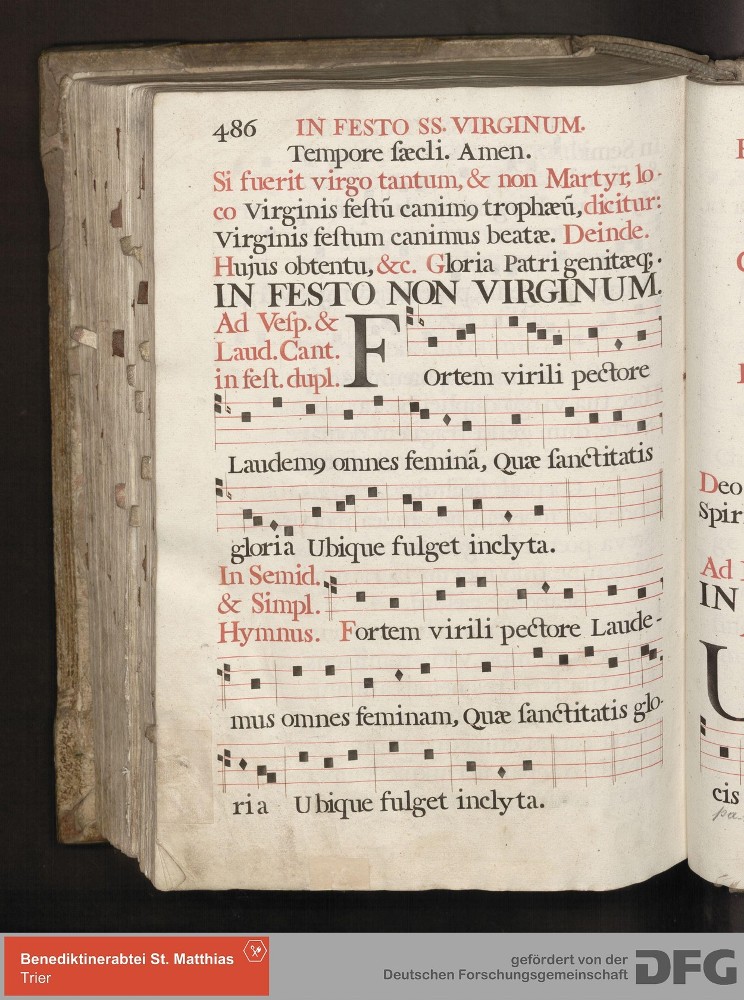 486 IN FESTO SS. VIRGINUM.
Tempore sæcli. Amen.
Si fuerit virgo tantum, & non Martyr, lo-
co Virginis festū canimꝰ trophæū, dicitur:
Virginis festum canimus beatæ. Deinde.
Hujus obtentu, &c. Gloria Patri genitæq;.
IN FESTO NON VIRGINUM.
Ad Vesp. &
Laud. Cant.
in fest. dupl.
FOrtem virili pectore
Laudemꝰ omnes feminā, Quæ sanctitatis
gloria Ubique fulget inclyta.
In Semid.
& Simpl.
Hymnus. Fortem virili pectore Laude-
mus omnes feminam, Quæ sanctitatis glo-
ria Ubique fulget inclyta.
Deo
Spir
Ad
IN
U
cis
Benediktinerabtei St. Matthias
Trier
gefördert von der
Deutschen Forschungsgemeinschaft
DFG